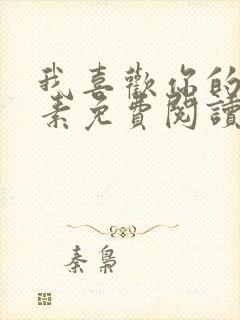 我喜歡你的
素免費閱讀
秦梟